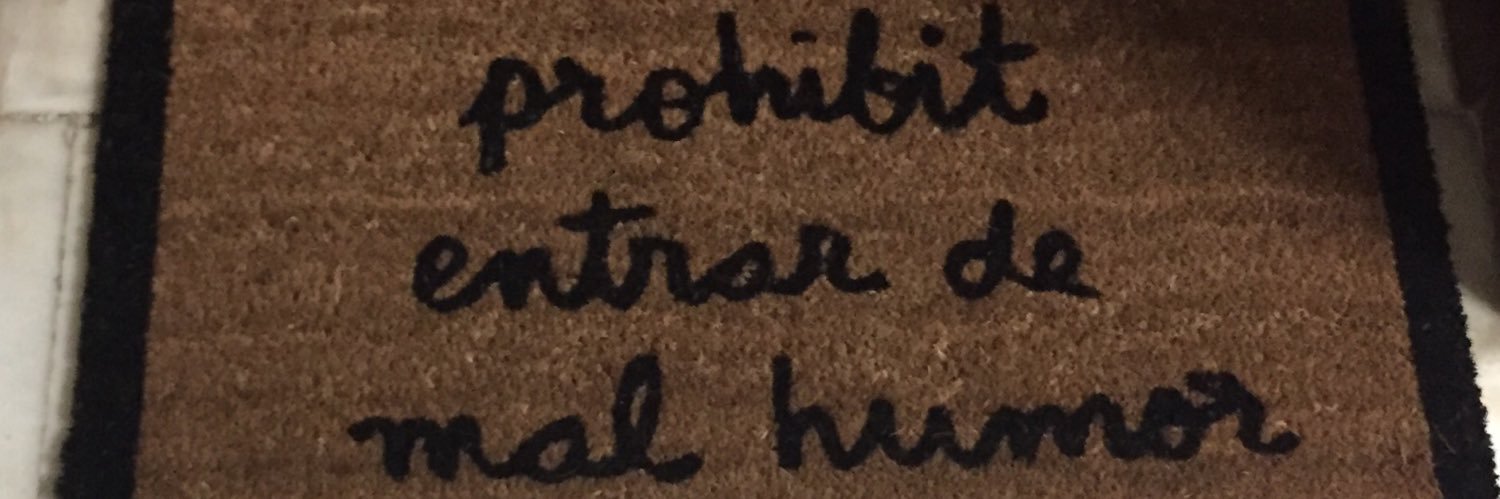 prohibit
entrar de
mal humor